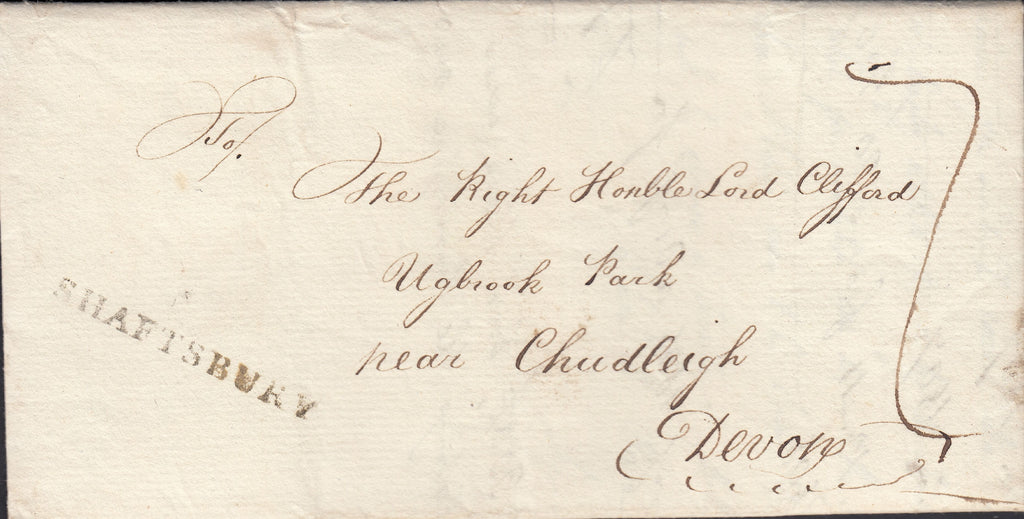 To/.
The Right Honble Lord Clifford
Ugbrook Park
near Chudleigh
Devon
SHAFTSBURY
7